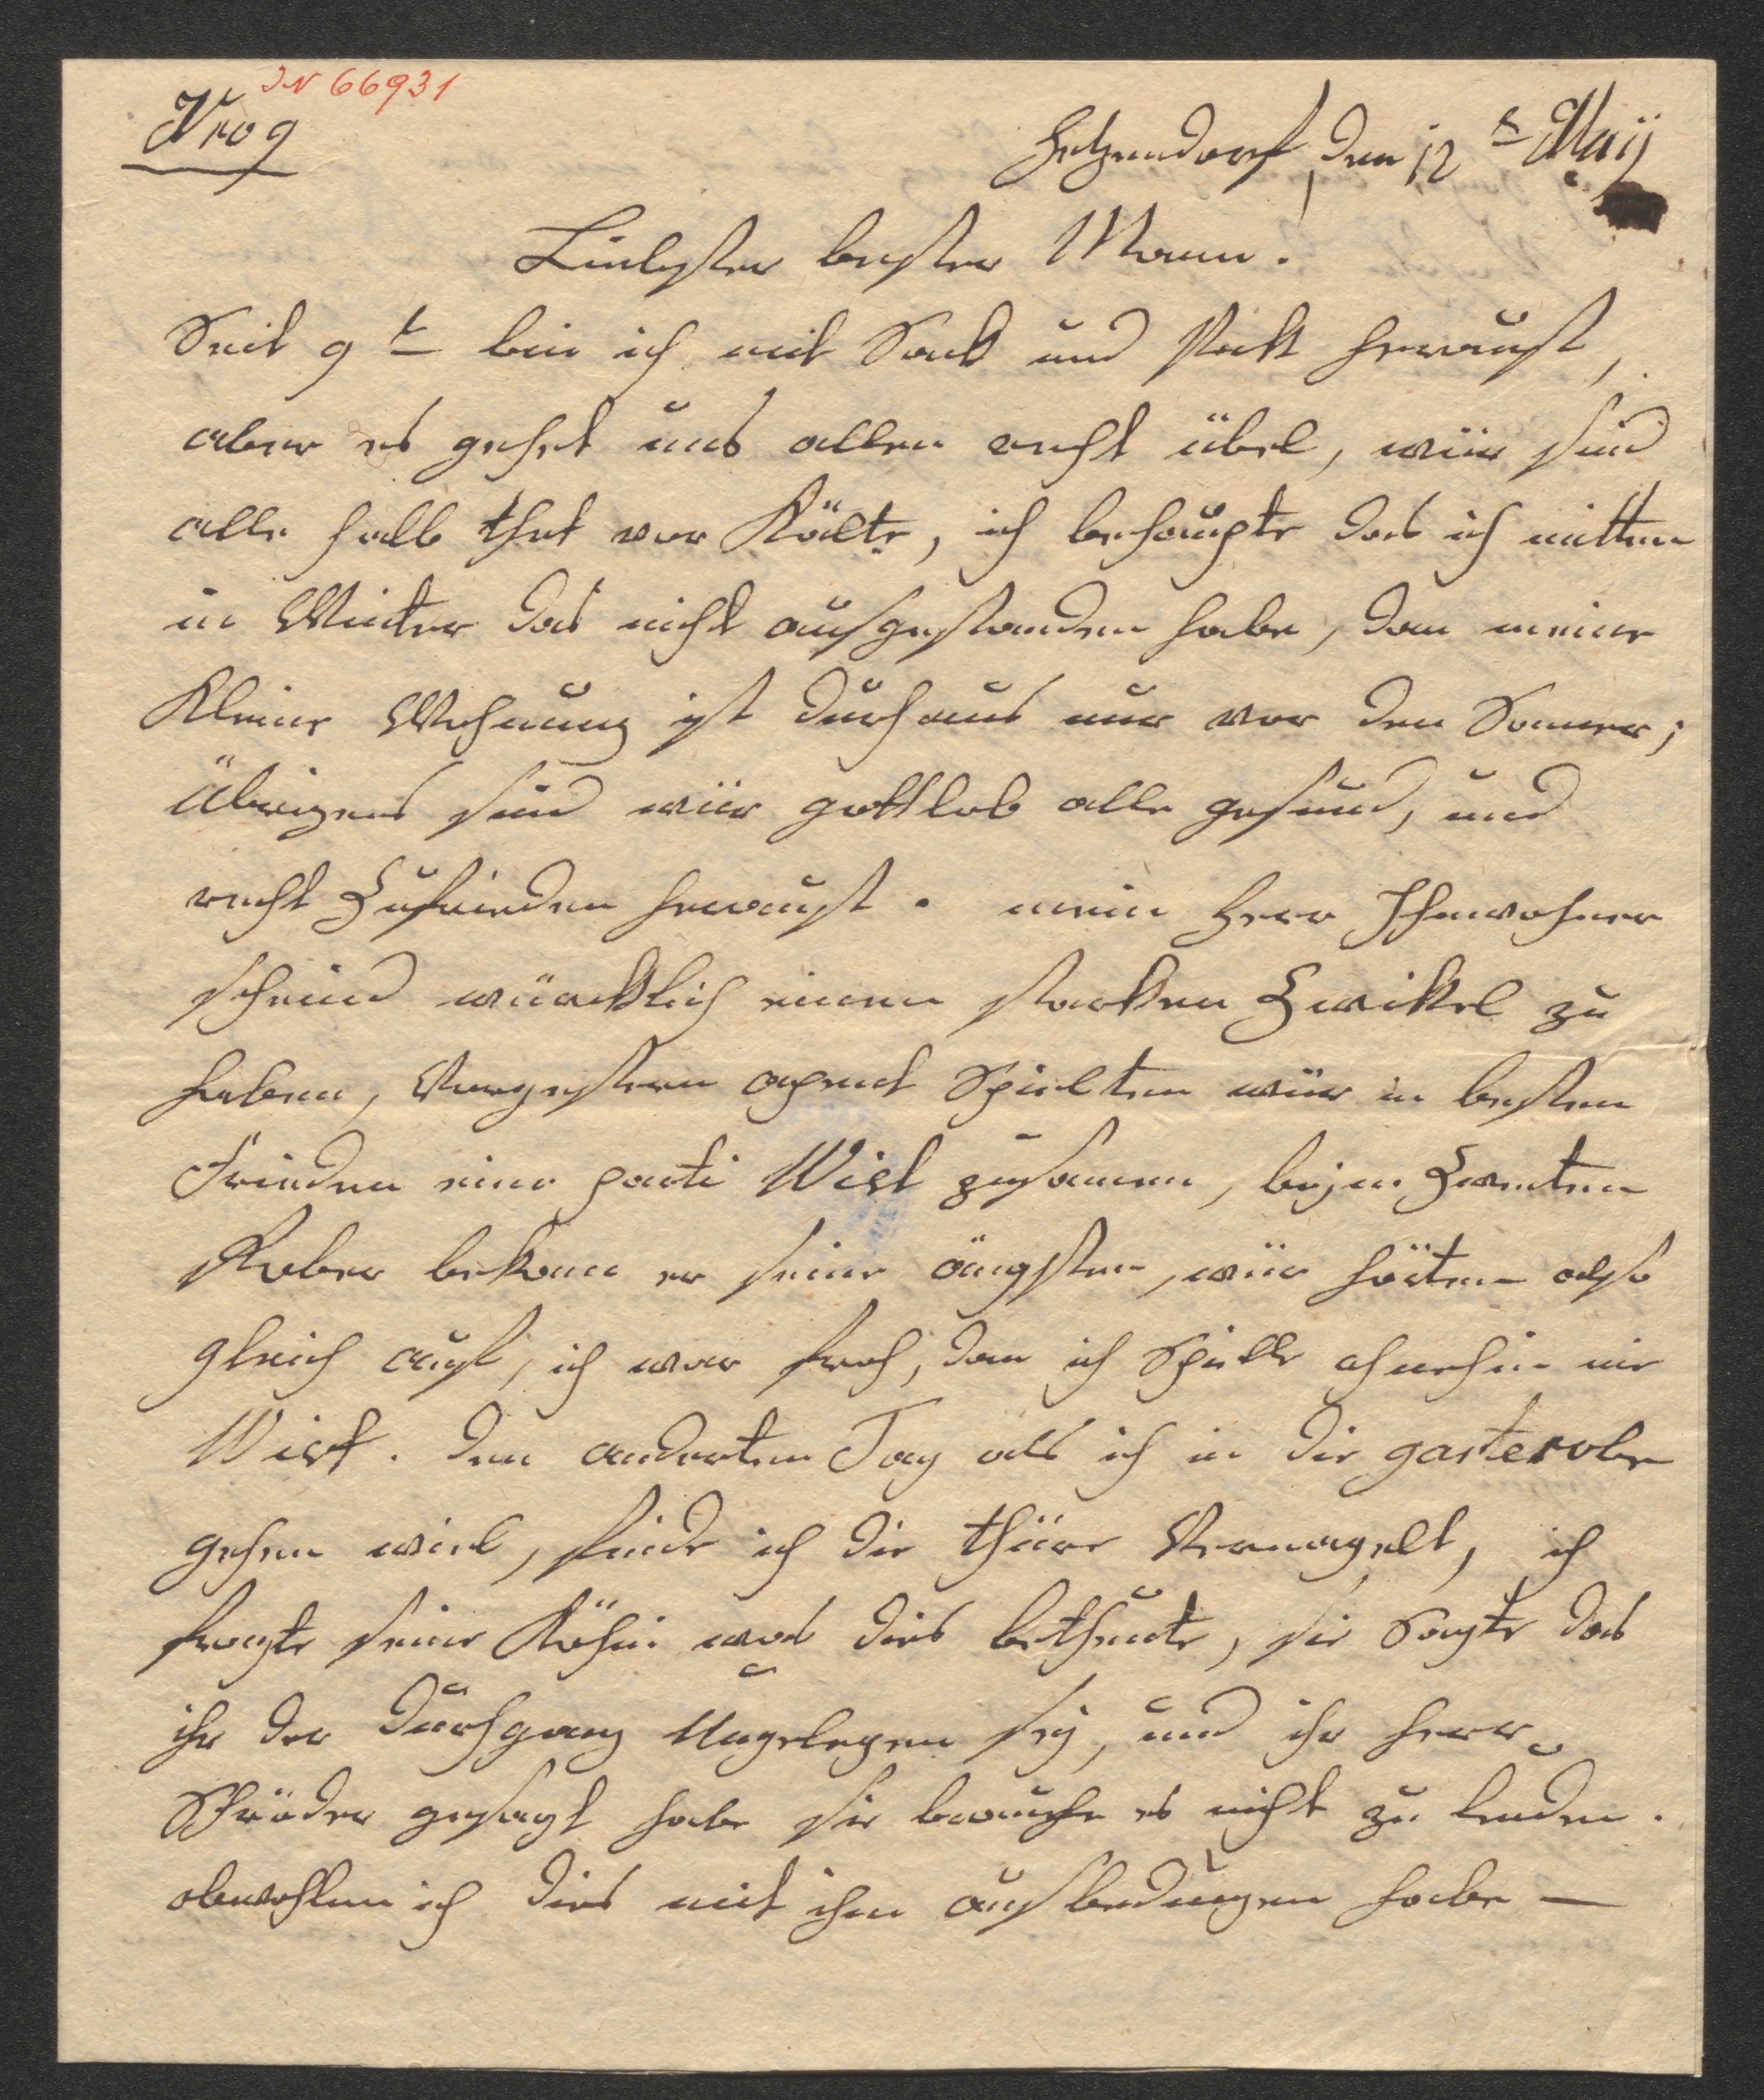 IN 66931
Nro 9
Hetzendorf, den 12t Maÿ
Liebster bester Mann.
Seit 9t bin ich mit Sack und Pack heraust,
aber es gehet uns allen recht übel, wür sind
alle halb thot vor Kälte, ich behaupte das ich mitten
in Winter das nicht ausgestanden habe, dan meine
Kleine Wohnung ist durchaus nur vor den Somer;
übrigens sind wür gottlob alle gesund, und
recht Zufrieden heraust. mein Herr Ihnwohner
scheind würcklich einen starken Zwikel zu
haben, Vorgestern apend Spielten wür in besten
Frieden eine parti Wist zusamen, bejm Zweiten
Rober bekam er seine ängsten, wür hörten also
gleich auf, ich war froh, dan ich Spielle ohnehin nie
Wist. den anderten Tag als ich in die garterobe
gehen will, finde ich die thüre Vernagelt, ich
fragte seine Köhin was dies betheute, sie Sagte das
ihr der durchgang Ungelegen seÿ, und ihr Herr
Schröder gesagt habe sie brauche es nicht zu leiden.
obwohlen ich dies mit ihm ausbedungen habe —